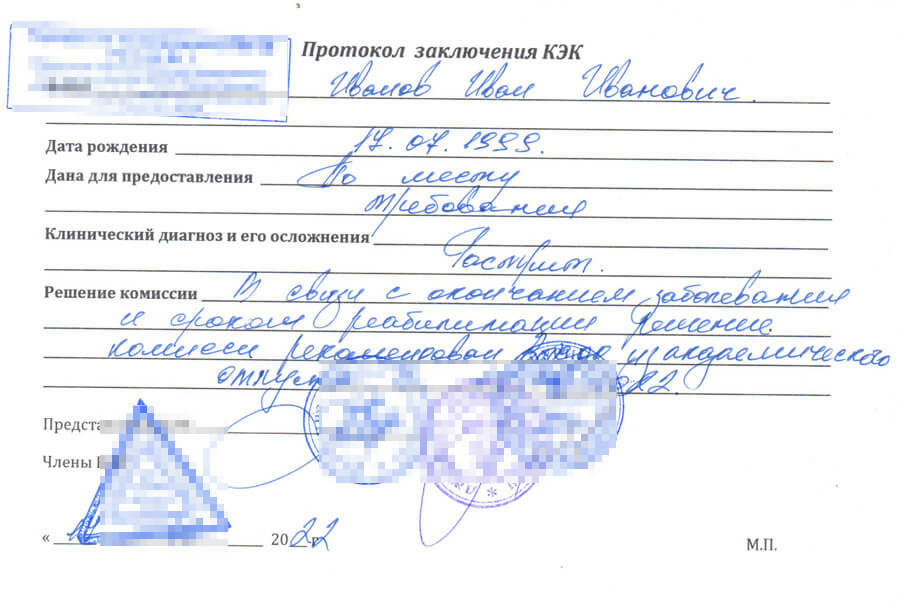 Протокол заключения КЭК
Иванов Иван Иванович.
Дата рождения 17.07.1999.
Дана для предоставления По месту
требования
Клинический диагноз и его осложнения
Гастрит.
Решение комиссии В связи с окончанием заболевания
и сроком реабилитации Решение
комисси рекомендован из академического
22.
Члены
« 20 22 г
М.П.